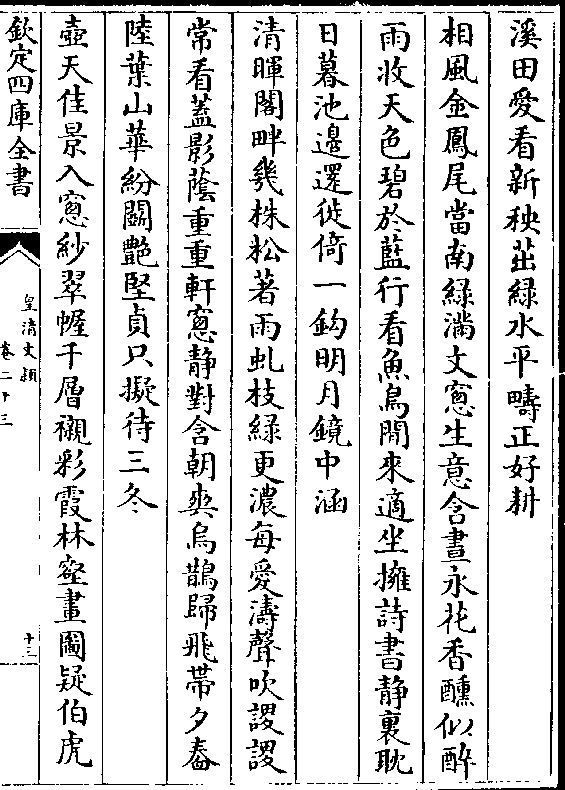 溪田愛看新秧茁綠水平疇正好耕
相風金鳳尾當南綠滿文窻生意含晝永花香醺似醉
雨收天色碧於藍行看魚鳥閒來適坐擁詩書静裏耽
日暮池邊遲徙倚一鈎明月鏡中涵
清暉閣畔幾株松著雨虬枝綠更濃每愛濤聲吹謖謖
常看蓋影蔭重重軒窻静對含朝爽烏鵲歸飛帶夕舂
陸葉山華紛鬭艷堅貞只擬待三冬
壺天佳景入窻紗翠幄千層襯彩霞林壑畫圖疑伯虎
欽定四庫全書
皇清文穎
卷二十三
十三